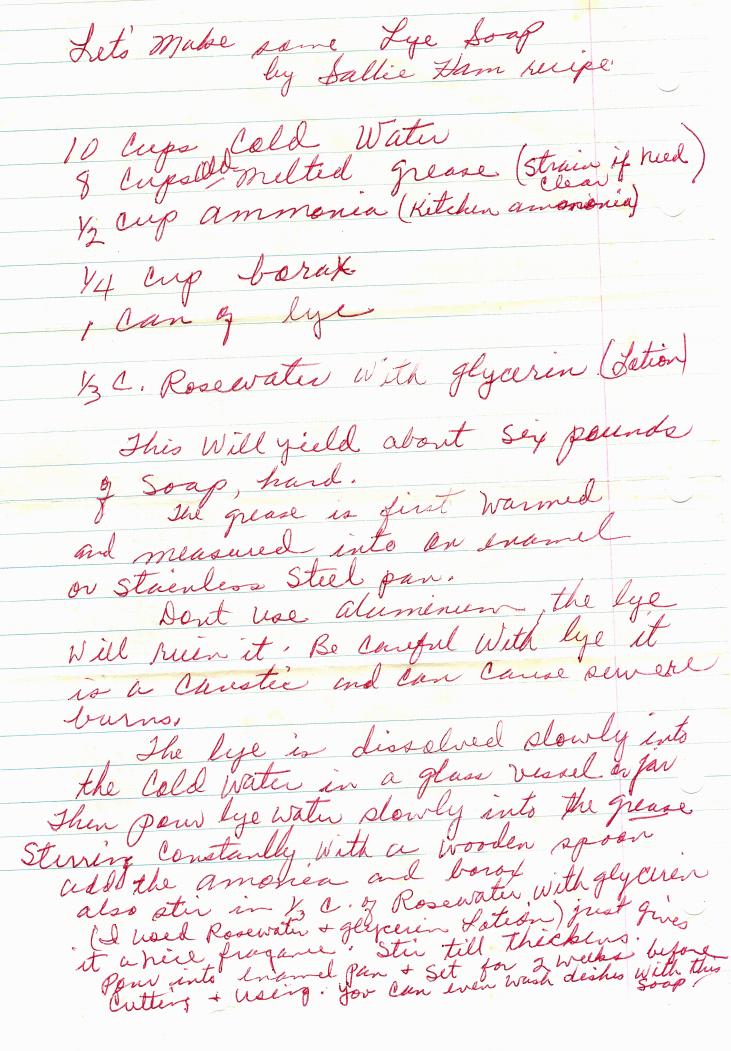 Let's Make some Lye Soap
by Sallie Ham recipe
10 Cups Cold Water
8 Cups old melted grease (strain if need)
clear
1/2 cup ammonia (Kitchen amonia)
1/4 cup borax
1 Can of lye
1/3 C. Rosewater with glycerin (Lotion)
This will yield about six pounds
of Soap, hard.
The grease is first warmed
and measured into an enamel
or stainless Steel pan.
Dont use aluminum, the lye
will ruin it. Be careful with lye it
is a caustic and can cause severe
burns.
The lye is dissolved slowly into
the cold water in a glass vessel or jar
Then pour lye water slowly into the grease
Stirring constantly with a wooden spoon
add the amonea and borax
also stir in 1/3 C. of Rosewater with glycerin
(I used Rosewater & glycerin Lotion) just gives
it a nice fragance. Stir till thickens.
Pour into enamel pan & Set for 2 weeks before
Cutting & using. You can even wash dishes with this
Soap!